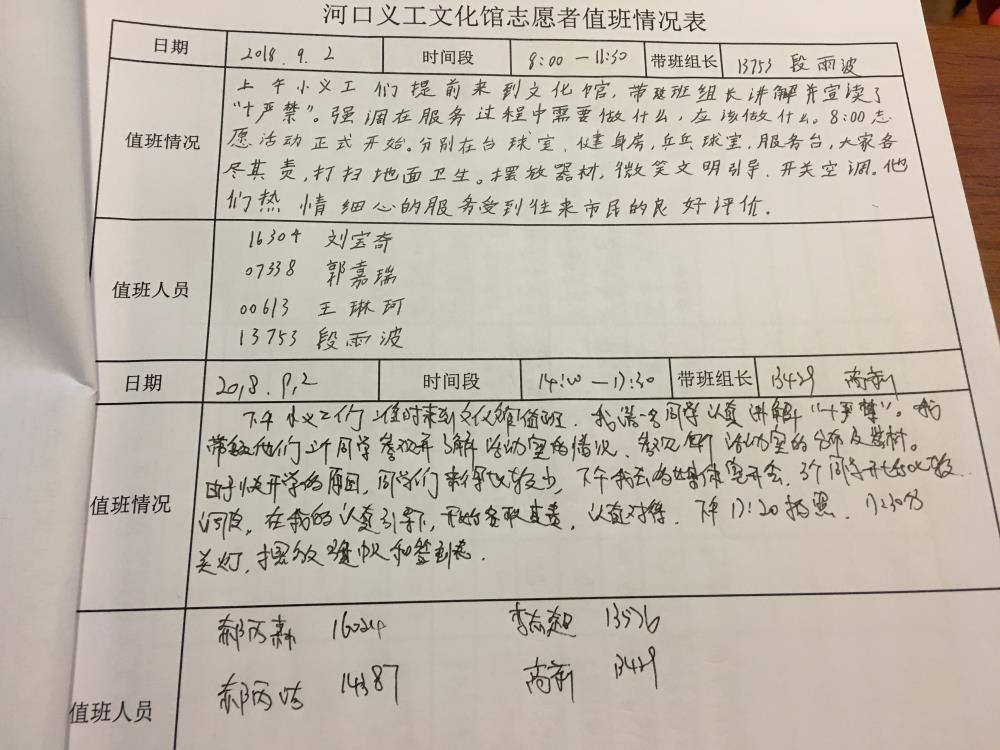 河口义工文化馆志愿者值班情况表
日期 2018.9.2 时间段 8:00—11:30 带班组长 13753 段雨波
上午小义工们提前来到文化馆,带班组长讲解并宣读了
"十严禁"。强调在服务过程中需要做什么,应该做什么。8:00志
值班情况 愿活动正式开始。分别在台球室、健身房,乒乓球室,服务台,大家各
尽其责,打扫地面卫生。摆放器材,微笑文明引导、开关空调。他
们热情细心的服务受到往来市民的良好评价.
16304 刘宝奇
07338 郭嘉瑞
值班人员 00613 王琳珂
13753 段雨波
日期 2018.9.2 时间段 14:00—17:30 带班组长 13429
下午小义工们准时来到文化馆值班. 同学认真讲解"十严禁"。我
带领他们 同学参观并了解活动室的情况、
由于快开学的原因,同学们来得比较少, 3个同学开始比较
值班情况 在我的认真引导下,开始各职其责,认真对待. 下午17:20拍照.
关灯,摆放 和签到表.
郝丙 16024 李志超 13576
郝丙 14387 13429
值班人员